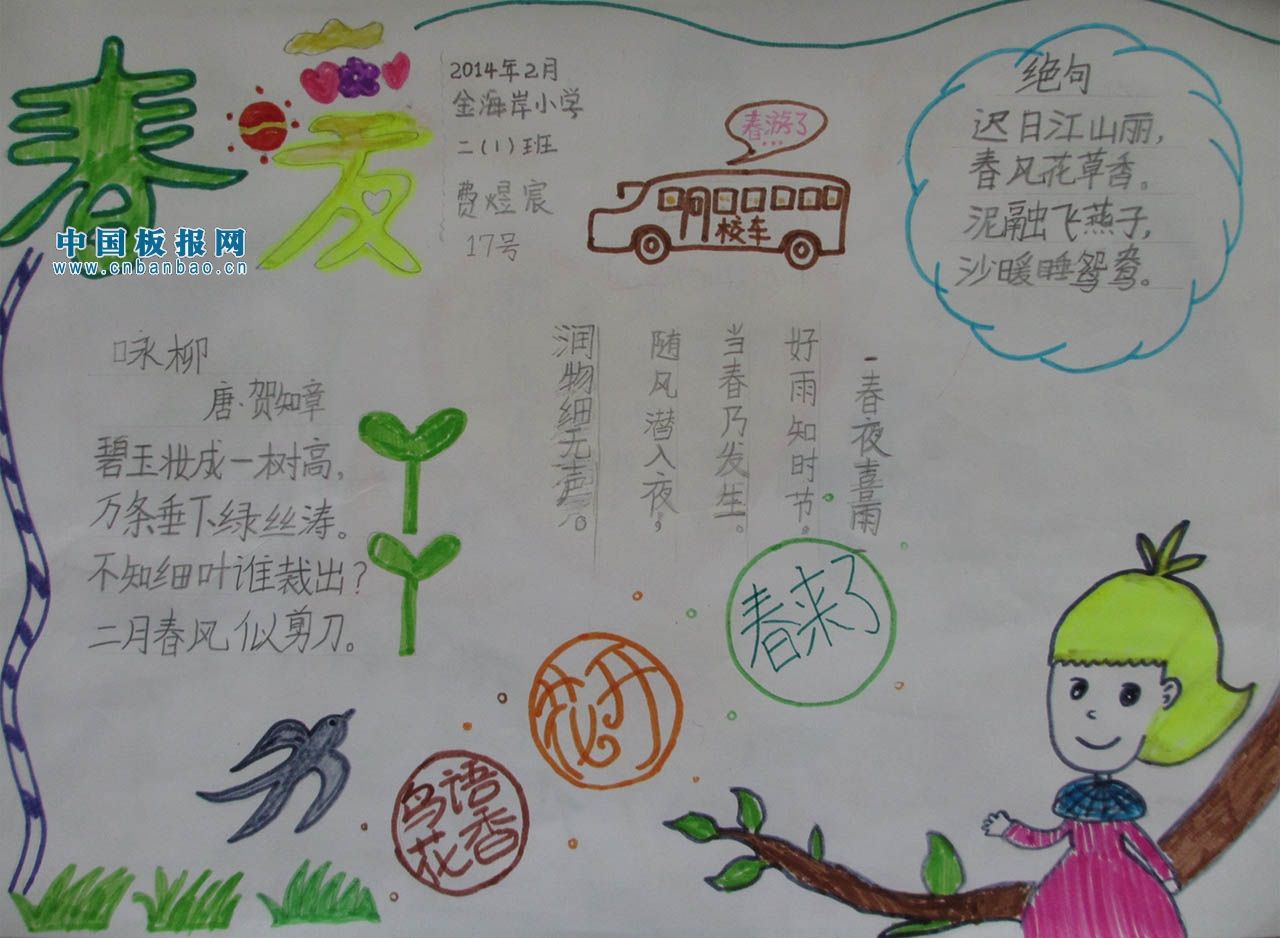 春爱
中国板报网
www.cnbanbao.cn
2014年2月
金海岸小学
二(1)班
费煜宸
17号
春游了
校车
绝句
迟日江山丽，
春风花草香。
泥融飞燕子，
沙暖睡鸳鸯。
咏柳
唐·贺知章
碧玉妆成一树高，
万条垂下绿丝涛。
不知细叶谁裁出？
二月春风似剪刀。
春夜喜雨
好雨知时节，
当春乃发生。
随风潜入夜，
润物细无声。
春来了
花开
鸟语
花香